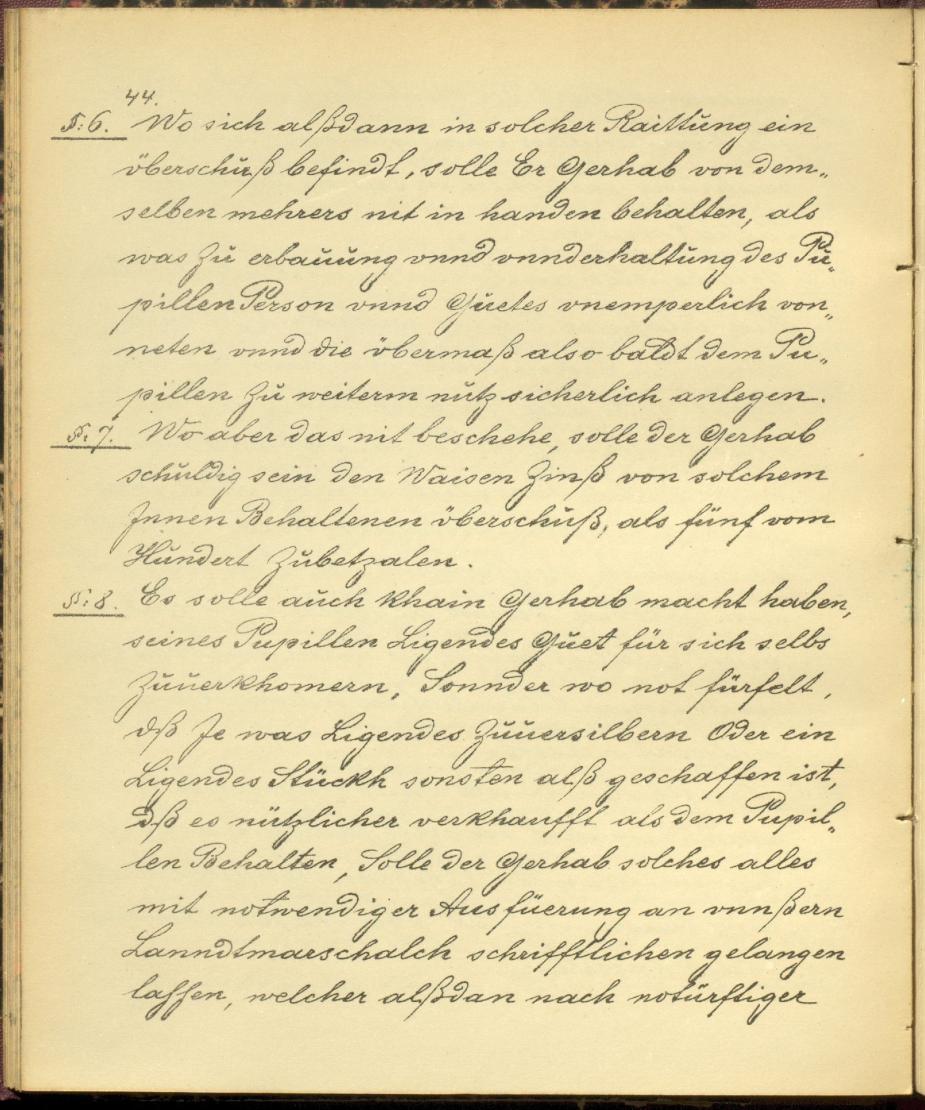 44.
§: 6. Wo sich alßdann in solcher Raittung ein
überschuß befindt, solle Er Gerhab von dem„
selben mehrers nit in handen behalten, als
was zu erbauung vnnd vnnderhaltung des Pu„
pillen Person vnnd Guetes vnemperlich von„
neten vnnd die übermaß also baldt dem Pu„
pillen zu weiterm nutz sicherlich anlegen.
§: 7. Wo aber das nit beschehe, solle der Gerhab
schuldig sein den Waisen Zinß von solchem
Innen Behaltenen überschuß, als fünf vom
Hundert Zubetzalen.
§: 8. Es solle auch khain Gerhab macht haben,
seines Pupillen Ligendes Guet für sich selbs
Zuuerkhomern, Sonnder wo not fürfelt,
dß Je was Ligendes Zuuersilbern Oder ein
Ligendes Stückh sonsten alß geschaffen ist,
dß es nützlicher verkhaufft als dem Pupil„
len Behalten, Solle der Gerhab solches alles
mit notwendiger Ausfüerung an vnnßern
Lanndtmarschalch schrifftlichen gelangen
lassen, welcher alßdan nach notürftiger